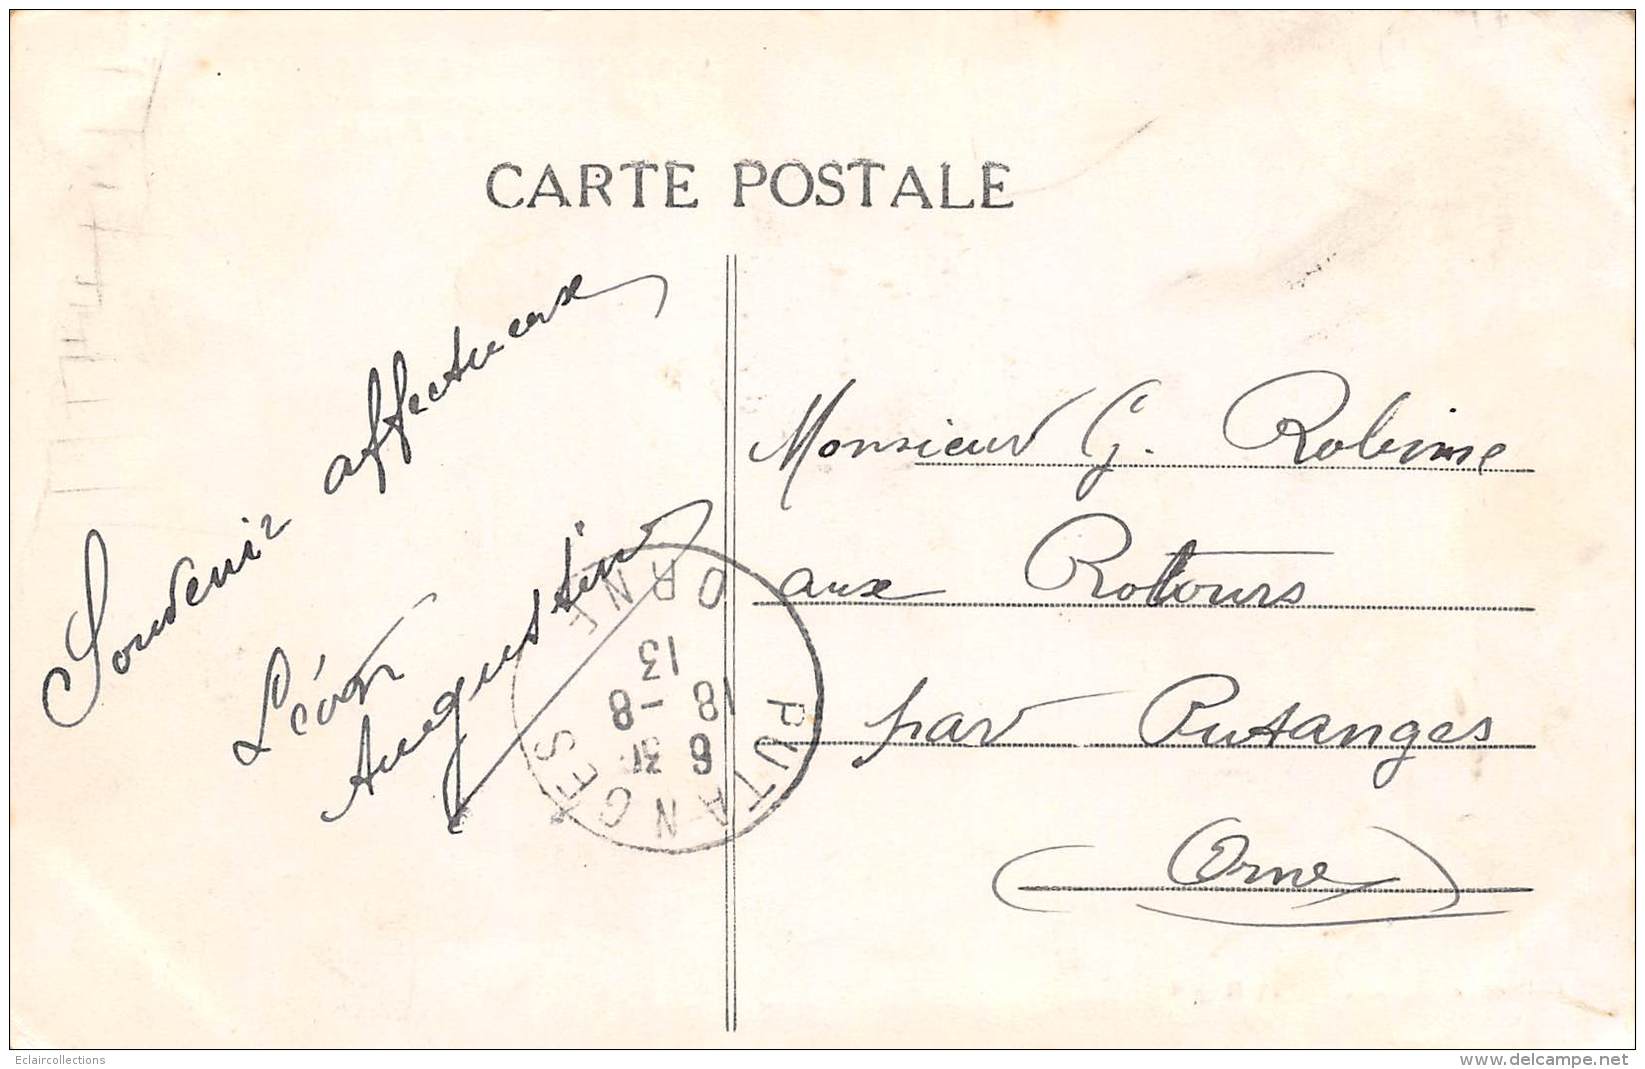 CARTE POSTALE
Souvenir affectueux
Léon
Augustin
Monsieur G. Robine
aux Rotours
par Putanges
(Orne)
PUTANGES
6 30
18 -8
13
ORNE
Eclaircollections
www.delcampe.net